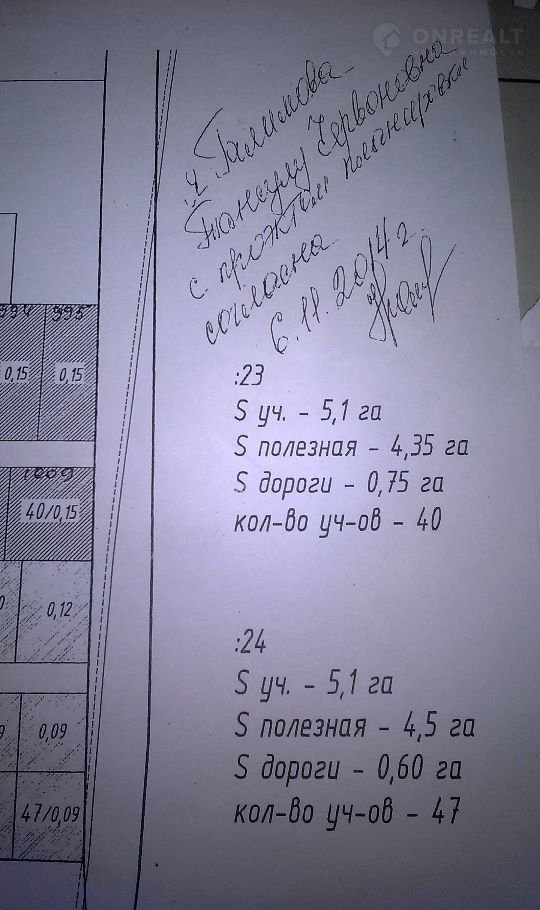 ONREALT
Я, Галимова
с проектом планировки
согласна
6.11.2014 г.
994 995
0,15 0,15
1009
40/0,15
0,12
0,09
47/0,09
:23
S уч. - 5,1 га
S полезная - 4,35 га
S дороги - 0,75 га
кол-во уч-ов - 40
:24
S уч. - 5,1 га
S полезная - 4,5 га
S дороги - 0,60 га
кол-во уч-ов - 47